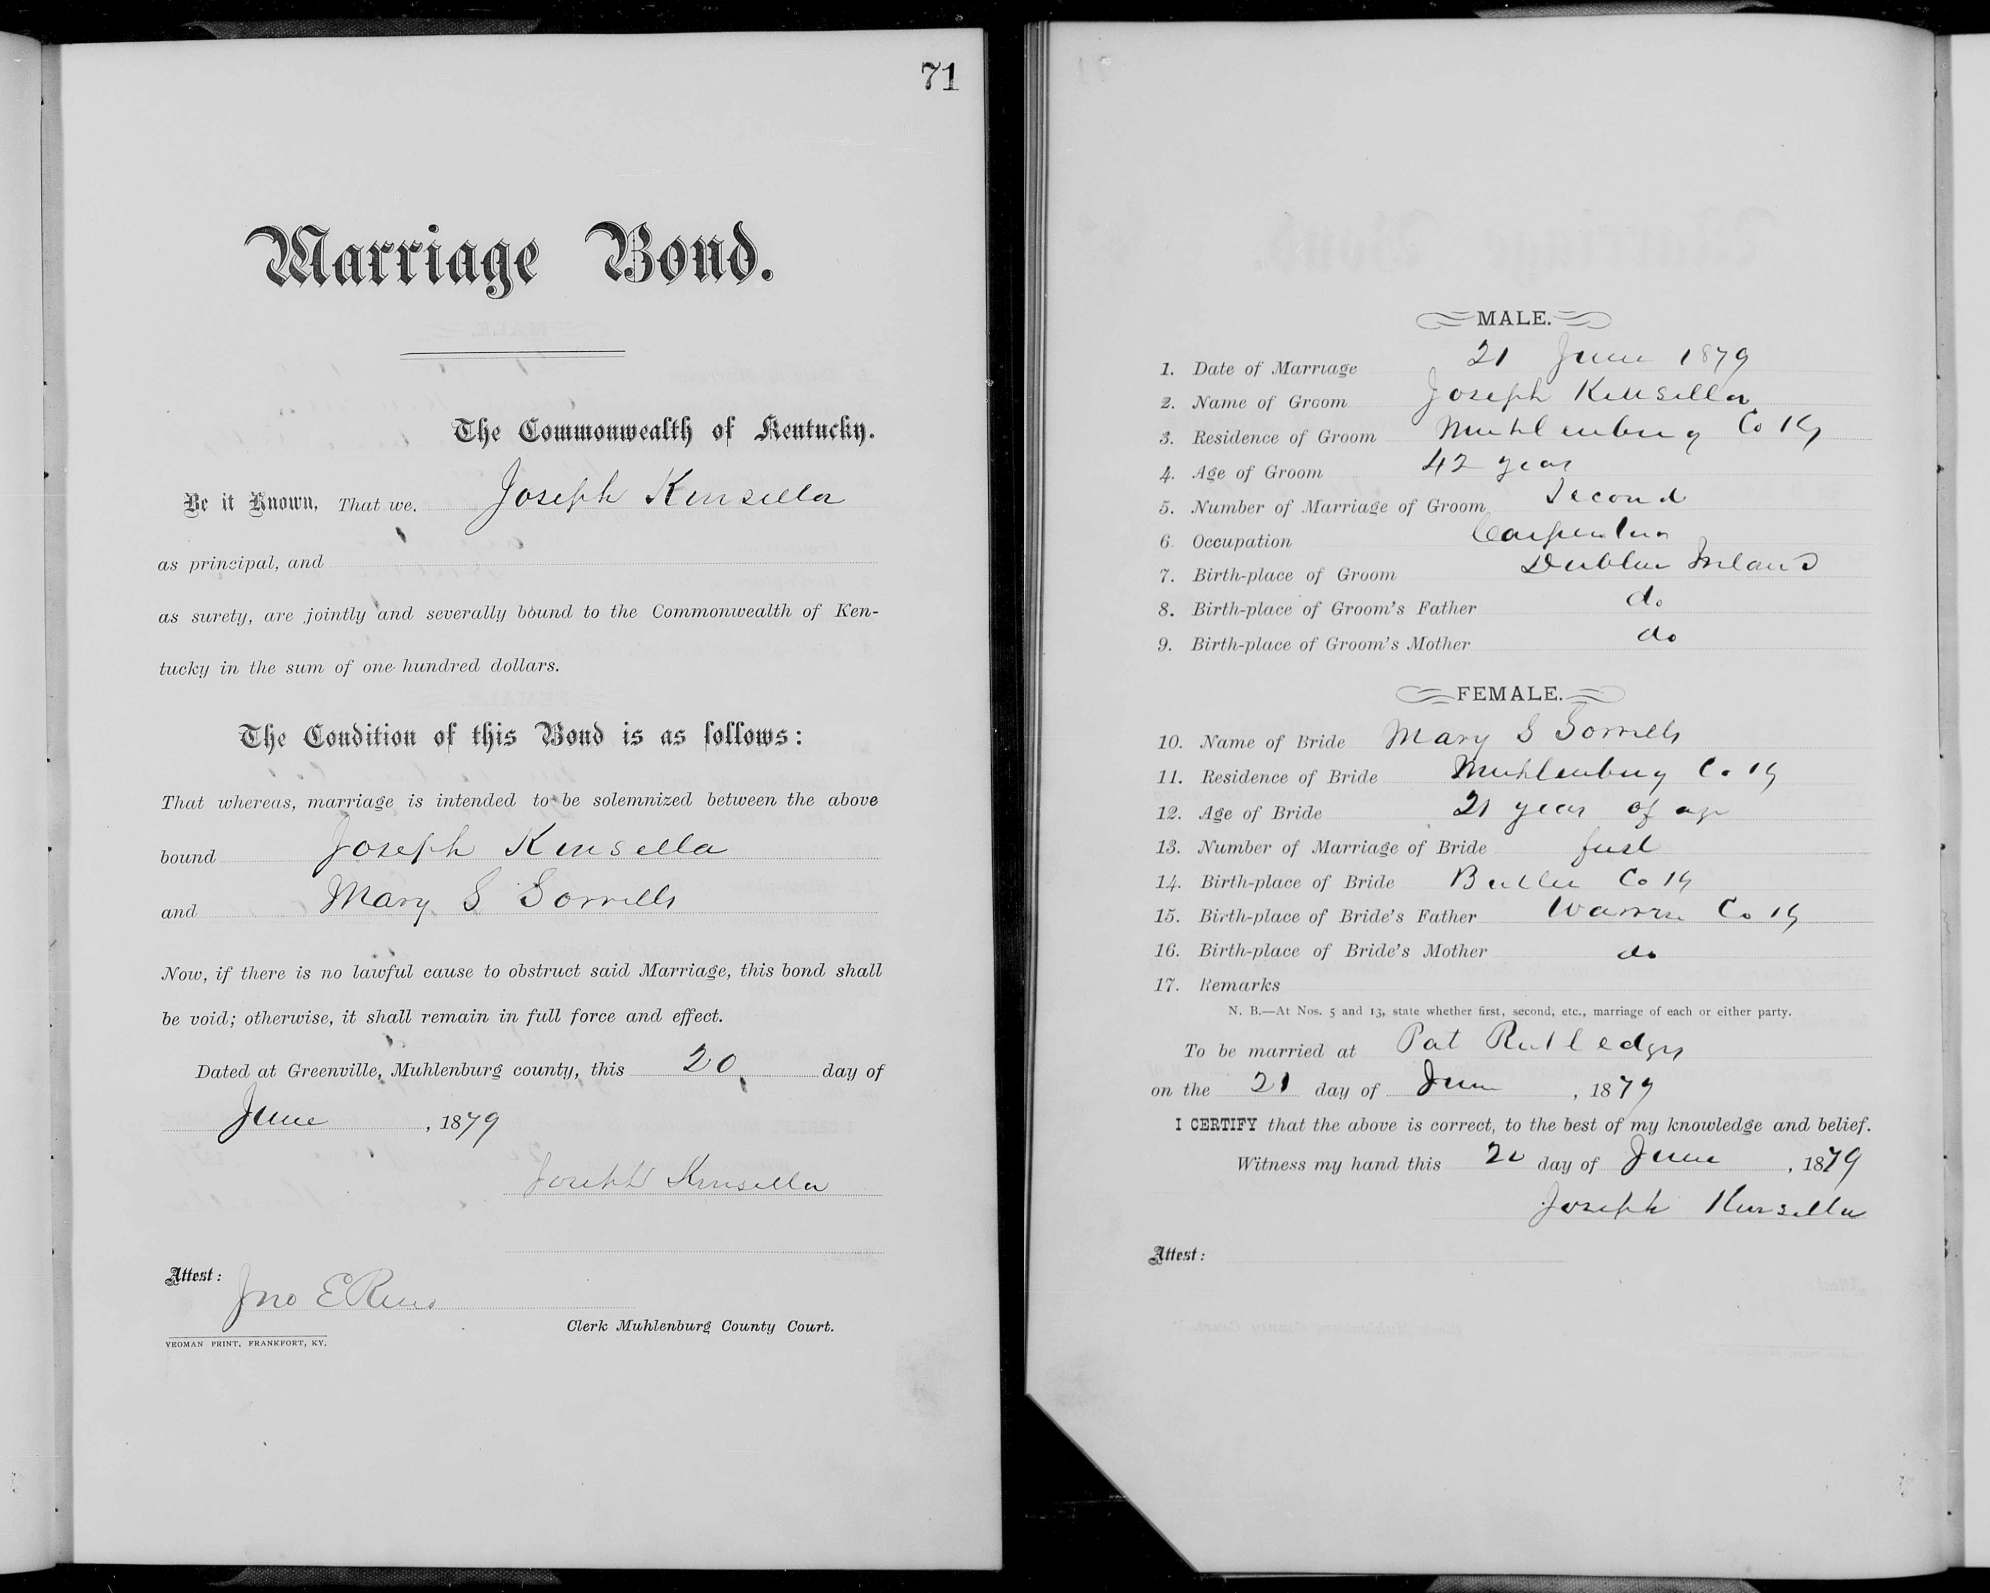 71
Marriage Bond.
The Commonwealth of Kentucky.
Be it Known, That we, Joseph Kinsella
as principal, and
as surety, are jointly and severally bound to the Commonwealth of Ken-
tucky in the sum of one hundred dollars.
The Condition of this Bond is as follows:
That whereas, marriage is intended to be solemnized between the above
bound Joseph Kinsella
and Mary S Sorrells
Now, if there is no lawful cause to obstruct said Marriage, this bond shall
be void; otherwise, it shall remain in full force and effect.
Dated at Greenville, Muhlenburg county, this 20 day of
June, 1879
Joseph Kinsella
Attest: Jno E Reno
Clerk Muhlenburg County Court.
YEOMAN PRINT, FRANKFORT, KY.
MALE.
1. Date of Marriage 21 June 1879
2. Name of Groom Joseph Kinsella
3. Residence of Groom Muhlenburg Co Ky
4. Age of Groom 42 years
5. Number of Marriage of Groom Second
6. Occupation Carpenter
7. Birth-place of Groom Dublin Ireland
8. Birth-place of Groom's Father do
9. Birth-place of Groom's Mother do
FEMALE.
10. Name of Bride Mary S Sorrells
11. Residence of Bride Muhlenburg Co Ky
12. Age of Bride 21 years of age
13. Number of Marriage of Bride first
14. Birth-place of Bride Butler Co Ky
15. Birth-place of Bride's Father Warren Co Ky
16. Birth-place of Bride's Mother do
17. Remarks
N. B.—At Nos. 5 and 13, state whether first, second, etc., marriage of each or either party.
To be married at Pat Rutledges
on the 21 day of June, 1879
I CERTIFY that the above is correct, to the best of my knowledge and belief.
Witness my hand this 20 day of June, 1879
Joseph Kinsella
Attest: